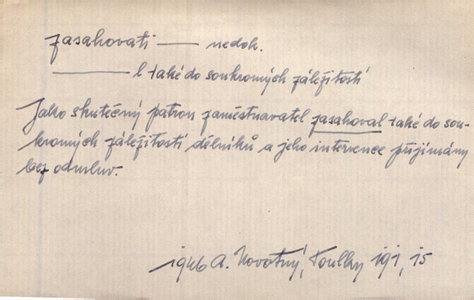 zasahovati — nedok.
— l také do soukromých záležitostí
Jako skutečný patron zaměstnavatel zasahoval také do sou-
kromých záležitostí dělníků a jeho intervence přijímány
bez odmluv.
1946 A. Novotný, Toulky 191, 15